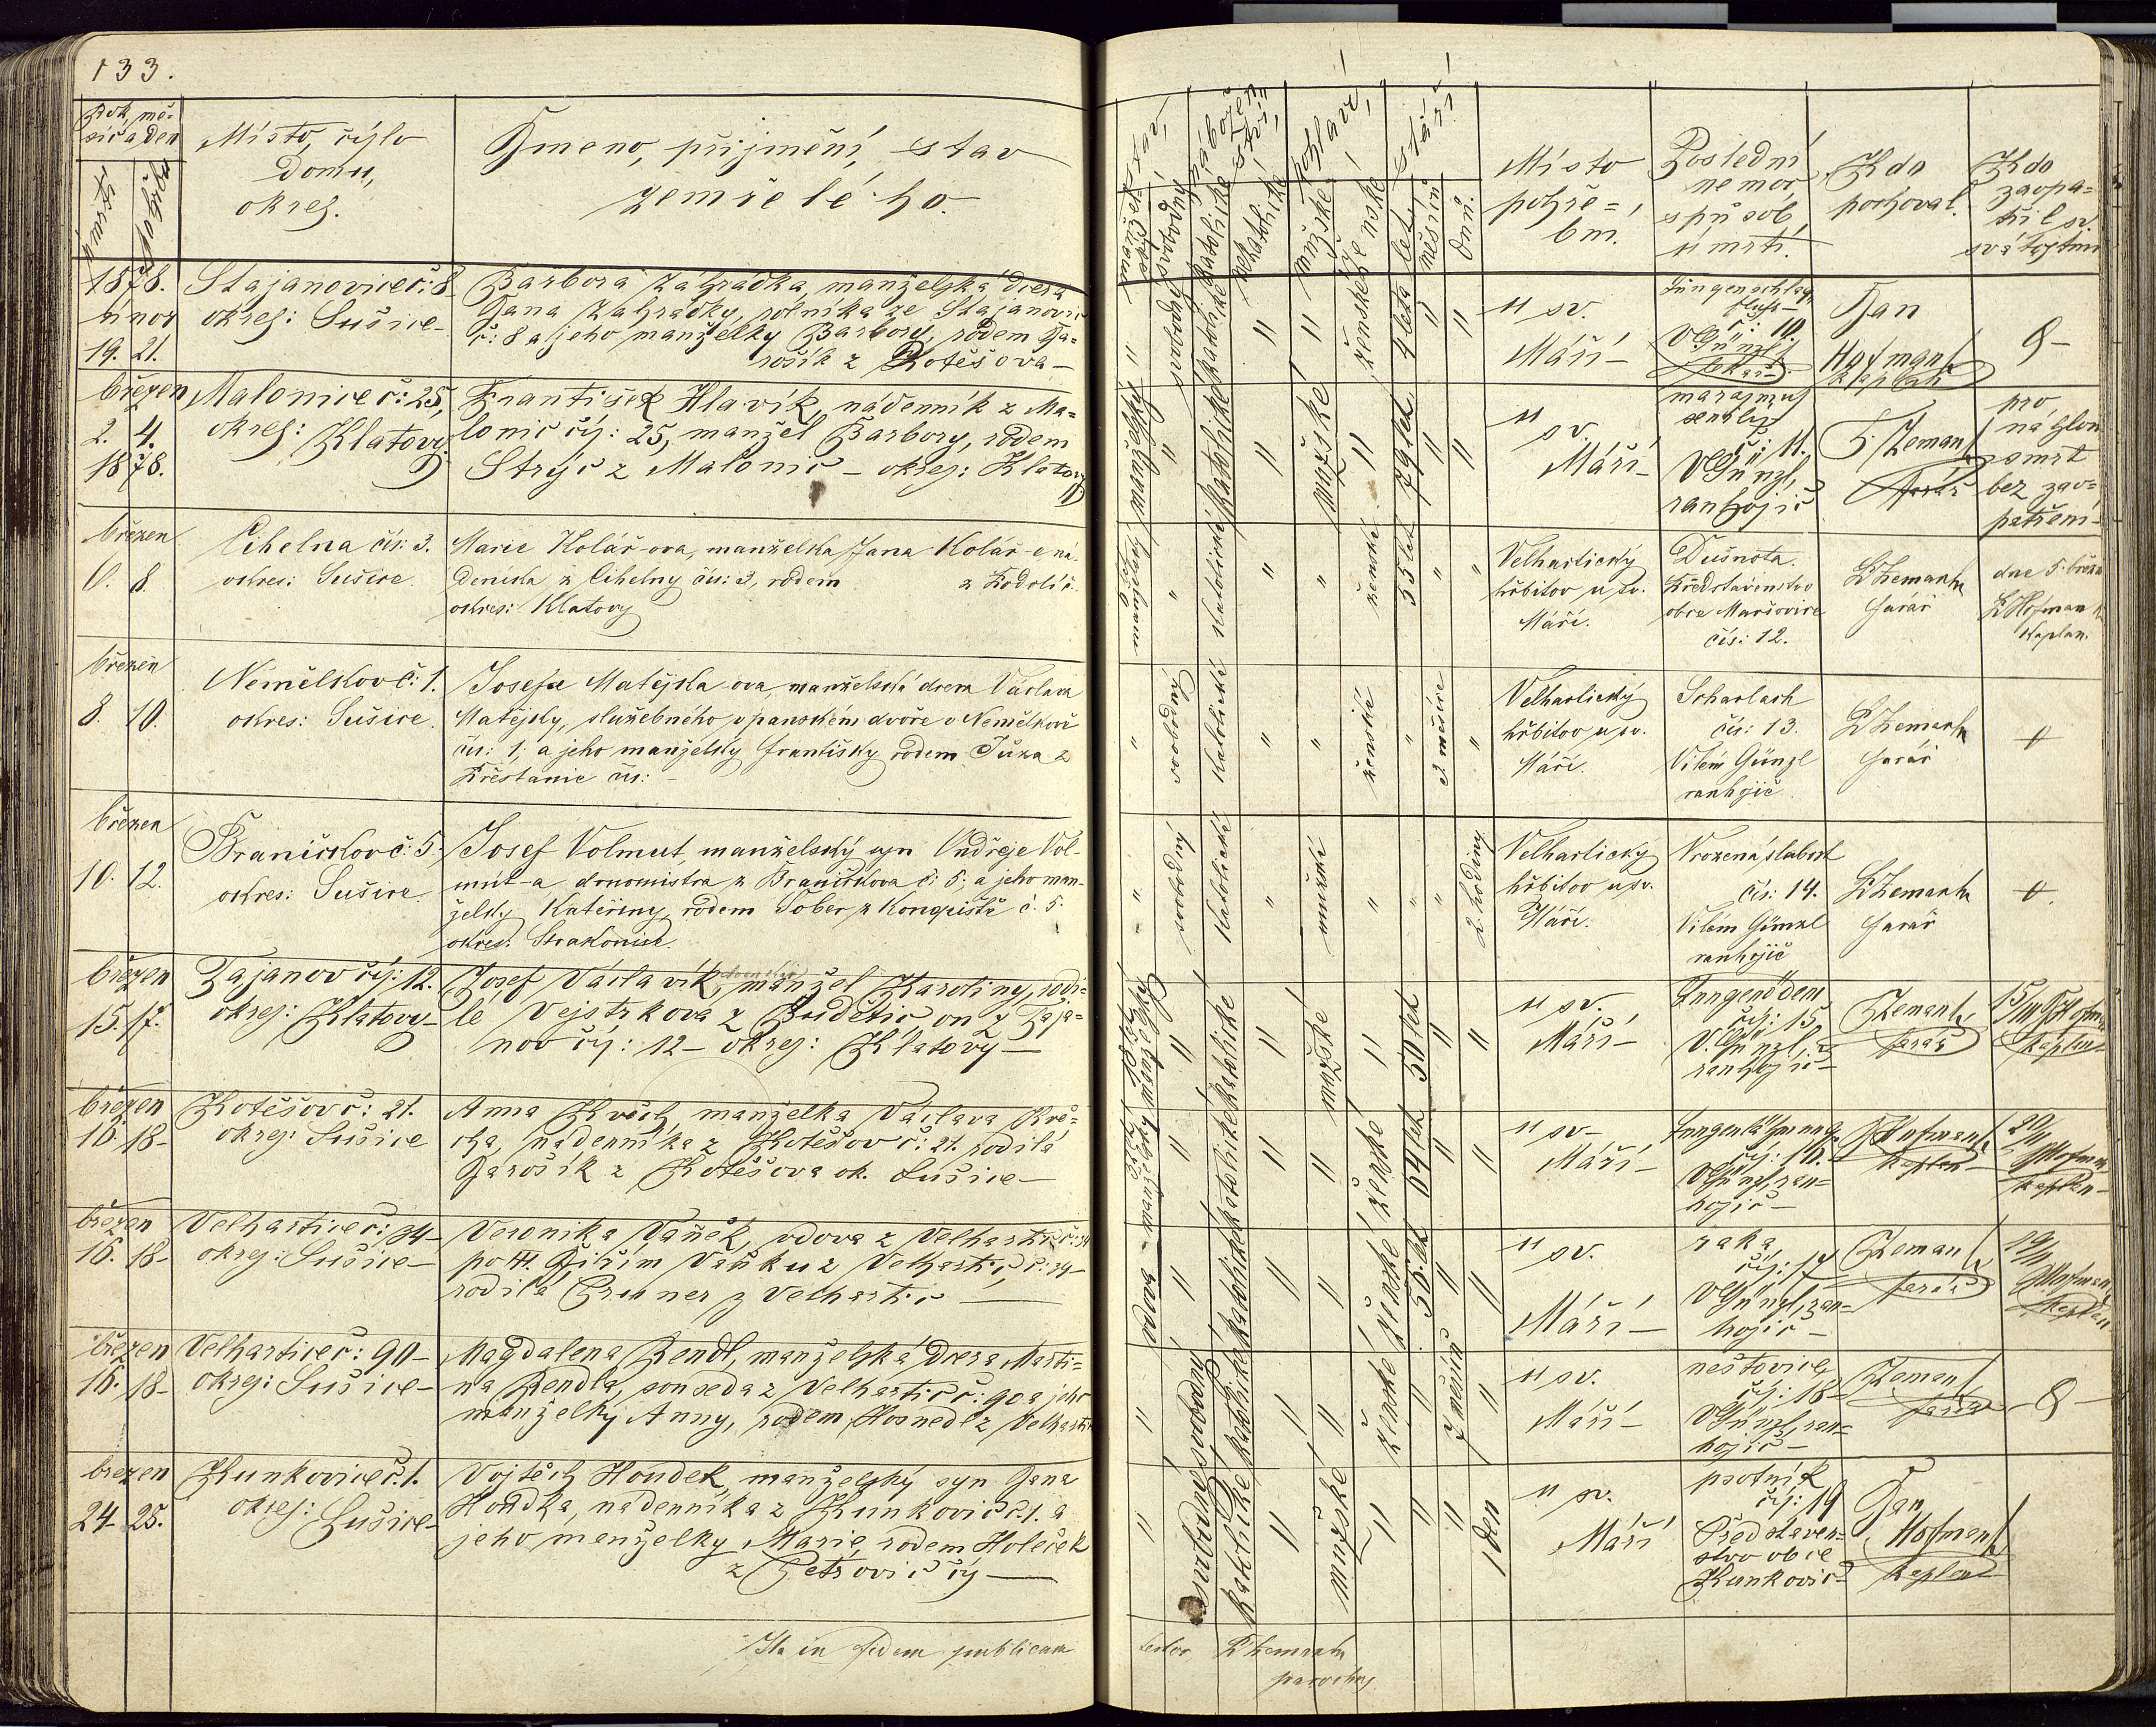 133.
Rok, mě-
síc a den
Místo, číslo
domu,
okres.
Jmeno, příjmění, stav
zemřelého.
úmrtí
1878.
únor
19. 21.
Stajanovice č: 8
okres: Sušice-
Barbora Zahrádka, manželská dcera
Jana Zahrádky, rolníka ze Stajanovic
č: 8 a jeho manželky Barbory, rodem Ja-
rošík z Kotěšova-
březen
2. 4.
1878.
Malonice č: 25,
okres: Klatovy.
František Hlavík, nádenník z Ma-
lonic čís: 25, manžel Barbory, rodem
Strýc z Malonic - okres: Klatovy
březen
6. 8.
Cihelna čís: 3.
okres: Sušice.
Marie Kolář-ova, manželka Jana Kolář-e ná-
deníka z Cihelny čís: 3, rodem z
okres: Klatovy
březen
8. 10.
Němělkov č: 1.
okres: Sušice.
Josefa Matějka-ova, manželská dcera Václava
Matějky, služebného v panském dvoře v Němělkově
čís: 1; a jeho manželky Františky rodem z
Křestanic čís: -
březen
10. 12.
Braníčkov č: 5.
okres: Sušice.
Josef Volmut, manželský syn Ondřeje Vol-
mut-a domomistra z Braníčkova č: 5; a jeho man-
želky Kateřiny, rodem Tober z č. 5.
okres: Strakonice.
březen
15. 17.
Tajanov čís: 12.
okres: Klatovy-
Josef Václavík, manžel Karoliny, rodi-
lé Vejstrkova z Budětic on z Taja-
nov čís: 12- okres: Klatovy-
březen
16. 18-
Kotěšov č: 21.
okres: Sušice
Anna Kvěch, manželka Václava Kvě-
cha, nádenníka z Kotěšov č: 21. rodilá
Jarošík z Kotěšova ok. Sušice-
březen
16. 18-
Velhartice č: 34-
okres: Sušice-
Veronika Vaněk, vdova z Velhartic č: 34
po Jiřím Vaňku z Velhartic č: 34-
rodilá Gruner z Velhartic
březen
16. 18-
Velhartice č: 90-
okres: Sušice-
Magdalena Rendl, manželská dcera Marti-
na Rendla, souseda z Velhartic č: 90 a jeho
manželky Anny, rodem Hosnedl z Velhartic
březen
24. 25.
Kunkovice č. 1.
okres: Sušice-
Vojtěch Houdek, manželský syn Jana
Houdka, nádenníka z Kunkovic č. 1. a
jeho menželky Marie, rodem Holeček
z Petrovic čís
Ita in fidem publicam
Stáří
mužské
ženské
let
měsíců
dnů.
Místo
pohře-
bu.
Poslední
nemoc,
způsob
úmrtí.
Kdo
pochoval.
Kdo
zaopa-
třil sv.
svátostmi
" svobodný katolické " " ženské 4 leta " "
u sv.
Máří-
č: 10.
V Günzl,
Jan
Hofmann
kaplan
" katolické " mužské " 79 let " "
u
sv.
Máří-
čís: 11.
V Günzl,
ranhojič
Zeman
farář
pro
náhlou
smrt
bez zao-
patření-
" katolické " " ženské 55 let " "
Velhartický
hřbitov u sv.
Máří.
Dušnota.
Představenstvo
obce Maršovice
čís: 12.
Zeman
farář
dne 5. března
Hofman
kaplan.
" svobodný katolické " " ženské " 3 měsíce "
Velhartický
hřbitov u sv.
Máří.
Scharlach
čís: 13.
Vilém Günzl
ranhojič
Zeman
farář
" svobodný katolické " mužské " " " 2 hodiny
Velhartický
hřbitov u sv.
Máří.
Vrozená slabost
čís: 14.
Vilém Günzl
ranhojič
Zeman
farář
" katolické " mužské " 50 let " "
u sv.
Máří-
Lungenödem
čís: 15
V. Günzl,
ranhojič-
Zeman
farář
15/III Hofman
kaplan
" katolické " " ženské 64 let " "
u sv-
Máří-
Lungenlähmung
čís: 16.
V Günzl, ran-
hojič-
Hofman
kaplan-
Hofman
kaplan-
vdova " katolické " " ženské " "
u sv.
Máří-
čís: 17
V Günzl, ran-
hojič-
Zeman
farář
Hofman
kaplan
" svobodný katolické " " ženské " 7 měsíců "
u sv.
Máří-
neštovice
čís: 18-
V Günzl, ran-
hojič-
Zeman
farář
" svobodný katolické " mužské " " " 1 den
u sv.
Máří
psotník
čís: 19
Představen-
stvo obce
Kunkovic-
Jan
Hofman
kaplan
testor
Zeman
parochus